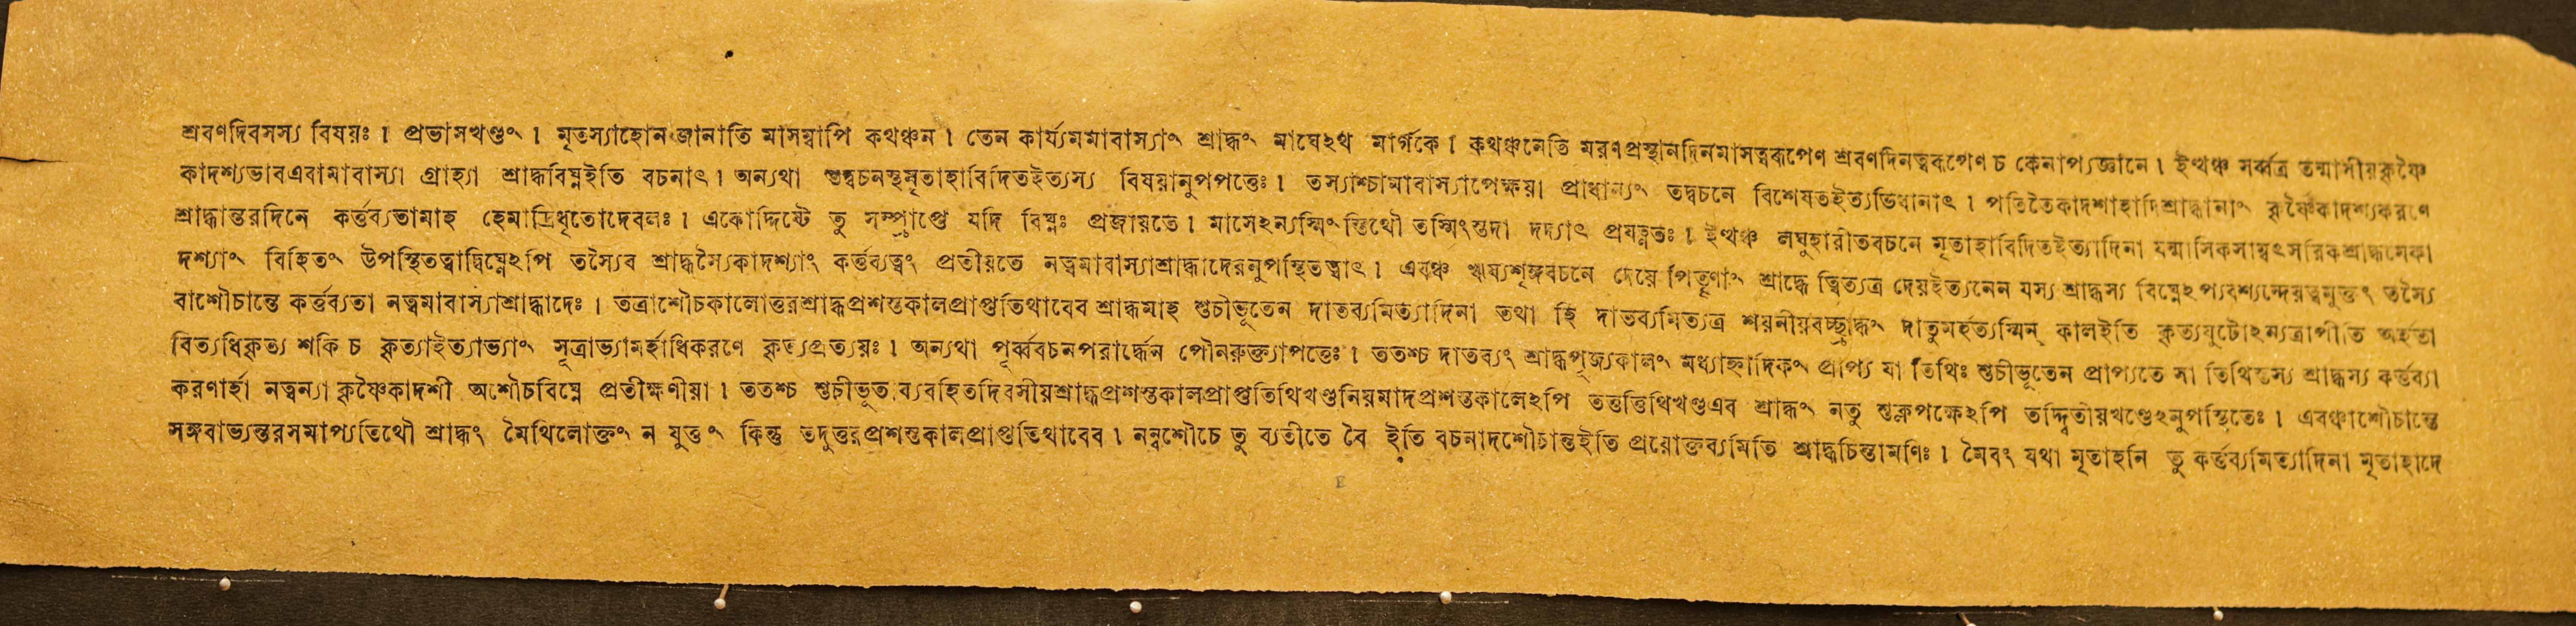 শ্রবণদিবসস্য বিষয়ঃ । প্রভাসখণ্ডং । মৃতস্যাহোন জানাতি মাসম্বাপি কথঞ্চন । তেন কার্য্যমমাবাস্যাং শ্রাদ্ধং মাঘেঽথ মার্গকে । কথঞ্চনেতি মরণপ্রস্থানদিনমাসত্বরূপেণ শ্রবণদিনত্বরূপেণ চ কেনাপ্যজ্ঞানে । ইত্থঞ্চ সর্ব্বত্র তন্মাসীয়কৃষ্ণৈ
কাদশ্যভাবএবামাবাস্যা গ্রাহ্যা শ্রাদ্ধবিঘ্নইতি বচনাৎ । অন্যথা শুদ্ধবচনস্থমৃতাহাবিদিতইত্যস্য বিষয়ানুপপত্তেঃ । তস্যাশ্চামাবাস্যাপেক্ষয়া প্রাধান্যং তদ্বচনে বিশেষতইত্যভিধানাৎ । পতিতৈকাদশাহাদিশ্রাদ্ধানাং কৃষ্ণৈকাদশ্যকরণে
শ্রাদ্ধান্তরদিনে কর্ত্তব্যতামাহ হেমাদ্রিধৃতোদেবলঃ । একোদ্দিষ্টে তু সম্প্রাপ্তে যদি বিঘ্নঃ প্রজায়তে । মাসেঽন্যস্মিংস্তিথৌ তস্মিংস্তদা দদ্যাৎ প্রযত্নতঃ । ইত্থঞ্চ লঘুহারীতবচনে মৃতাহাবিদিতইত্যাদিনা যন্মাসিকসাম্বৎসরিকশ্রাদ্ধমেকা
দশ্যাং বিহিতং উপস্থিতত্বাদ্বিঘ্নেঽপি তস্যৈব শ্রাদ্ধস্যৈকাদশ্যাং কর্ত্তব্যত্বং প্রতীয়তে নত্বমাবাস্যাশ্রাদ্ধাদেরনুপস্থিতত্বাৎ । এবঞ্চ ঋষ্যশৃঙ্গবচনে দেয়ে পিতৄণাং শ্রাদ্ধে ত্বিত্যত্র দেয়ইত্যনেন যস্য শ্রাদ্ধস্য বিঘ্নেঽপ্যবশ্যন্দেয়ত্বমুক্তং তস্যৈ
বাশৌচান্তে কর্ত্তব্যতা নত্বমাবাস্যাশ্রাদ্ধাদেঃ । তত্রাশৌচকালোত্তরশ্রাদ্ধপ্রশস্তকালপ্রাপ্ততিথাবেব শ্রাদ্ধমাহ শুচীভূতেন দাতব্যমিত্যাদিনা তথা হি দাতব্যমিত্যত্র শয়নীয়বচ্ছ্রাদ্ধং দাতুমর্হত্যস্মিন্ কালইতি কৃত্যযুটোঽন্যত্রাপীতি অর্হতা
বিত্যধিকৃত্য শকি চ কৃত্যাইত্যাভ্যাং সূত্রাভ্যামর্হাধিকরণে কৃত্যপ্রত্যয়ঃ । অন্যথা পূর্ব্ববচনপরার্দ্ধেন পৌনরুক্ত্যাপত্তেঃ । ততশ্চ দাতব্যং শ্রাদ্ধপূজ্যকালং মধ্যাহ্নাদিকং প্রাপ্য যা তিথিঃ শুচীভূতেন প্রাপ্যতে সা তিথিস্তস্য শ্রাদ্ধস্য কর্ত্তব্যা
করণার্হা নত্বন্যা কৃষ্ণৈকাদশী অশৌচবিঘ্নে প্রতীক্ষণীয়া । ততশ্চ শুচীভূত ব্যবহিতদিবসীয়শ্রাদ্ধপ্রশস্তকালপ্রাপ্ততিথিখণ্ডনিয়মাদপ্রশস্তকালেঽপি তত্তত্তিথিখণ্ডএব শ্রাদ্ধং নতু শুক্লপক্ষেঽপি তদ্দ্বিতীয়খণ্ডেঽনুপস্থিতেঃ । এবঞ্চাশৌচান্তে
সঙ্গবাভ্যন্তরসমাপ্যতিথৌ শ্রাদ্ধং মৈথিলোক্তং ন যুক্তং কিন্তু তদুত্তরপ্রশস্তকালপ্রাপ্ততিথাবেব । নন্বশৌচে তু ব্যতীতে বৈ ইতি বচনাদশৌচান্তইতি প্রয়োক্তব্যমিতি শ্রাদ্ধচিন্তামণিঃ । মৈবং যথা মৃতাহনি তু কর্ত্তব্যমিত্যাদিনা মৃতাহাদে